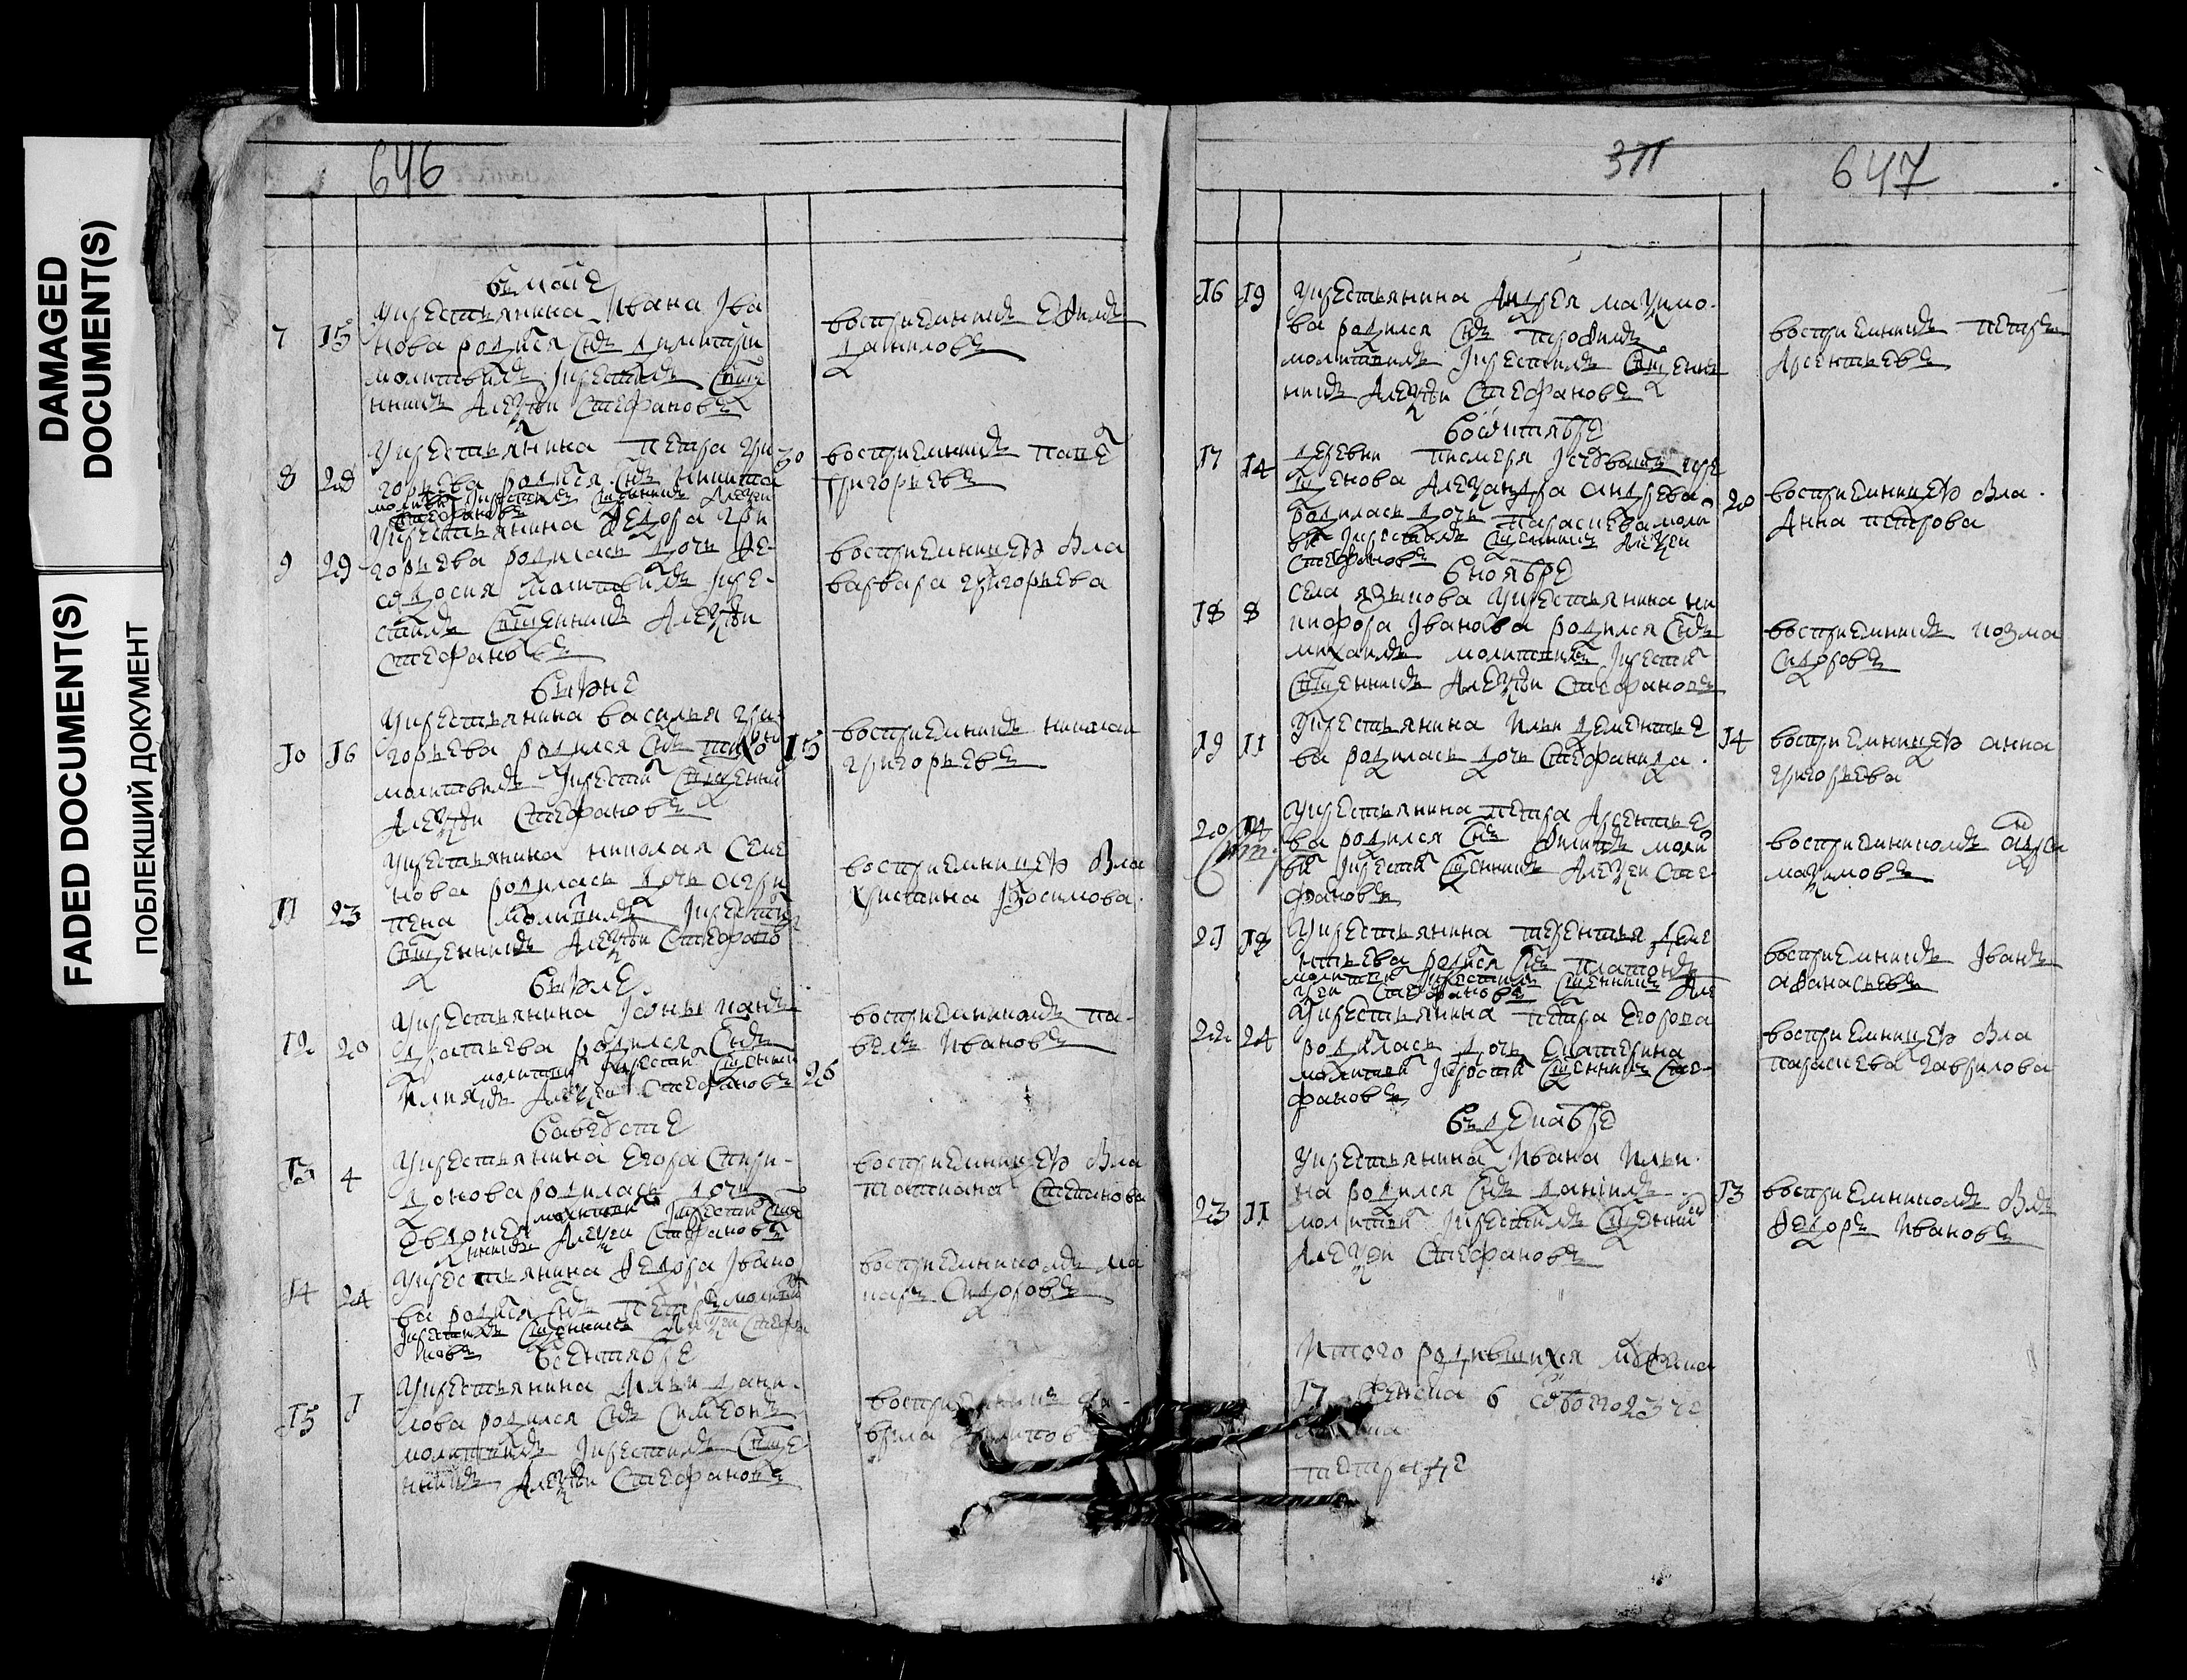 DAMAGED
DOCUMENT(S)
FADED DOCUMENT(S)
ПОБЛЕКШИЙ ДОКУМЕНТ
646
въ маие
7 15 укрестьянина Ивана Ива
нова родися снъ димитри
молитвилъ Iкрестилъ сще
нникъ Алеѯѣи Стефановъ
восприемникъ
даниловъ
8 28 укрестьянина петра гри 30
горьева родися снъ никита
Iкрестилъ сщенникъ Алеѯеи
Стефановъ
восприемникъ
григорьевъ
9 29 укрестьянина Ѳедора гри
горьева родилась дочь Ѳе
одосия молитвилъ Iкре
стилъ сщенникъ Алеѯѣи
Стефановъ
восприемницею была
варвара григорьева
въ июне
10 16 укрестьянина василья гри 15
горьева родился снъ тихо
молитвилъ Iкрестил сщенни
Алеѯѣи Стефановъ
восприемникъ николаи
григорьевъ
11 23 укрестьянина николая Семе
нова родилась дочь агри
пена молитвилъ Iкрестил
сщенникъ Алеѯѣи Стефано
восприемницею была
христина
въ июле
12 20 укрестьянина
родился снъ
молитви Iкрестил сщенни 25
Илия Алеѯеи Стефановъ
восприемникомъ па
велъ Ивановъ
въ августе
13 4 укрестьянина Егора Спири
донова родилась дочь
Евдокея молитви Iкрестил сще
нникъ Алеѯеи Стефановъ
восприемницею была
татиана Степанова
14 24 укрестьянина Ѳедора Iвано
ва родися снъ петръ молитви
Iкрестилъ сщенникъ Алеѯеи Стефа
новъ
восприемникомъ ма
каръ Сидоровъ
в сентябре
15 1 укрестьянина Ильи дани
лова родился снъ Симеонъ
молитвилъ Iкрестилъ сще
нникъ Алеѯѣи Стефановъ
восприемникъ га
врила
371 647
16 19 укрестьянина Андрея маѯимо
ва родился снъ трофимъ
молитвилъ Iкрестилъ сщенн
никъ Алеѯѣи Стефановъ
восприемникъ петръ
Арсентьевъ
в октябре
17 14 деревни
Алеѯандра андреева 20
родилась дочь параскева моли
ви Iкрестилъ сщенникъ Алеѯеи
Стефановъ
восприемницею была
Анна петрова
в ноябре
18 8 села языкова укрестьянина ни
кифора Iванова родился снъ
михаилъ молитвилъ Iкрестил
сщенникъ Алеѯѣи Стефановъ
восприемникъ козма
Сидоровъ
19 11 укрестьянина Ильи дементье 14
ва родилась дочь Стефанида
восприемницею анна
григорьева
20 14 укрестьянина петра Арсентье
ва родился снъ Филипъ моли
ви Iкрестил сщенникъ Алеѯеи Сте
фановъ
восприемникомъ андреи
маѯимовъ
21 18 укрестьянина терентья деме
нтьева родися снъ платонъ
молитви Iкрестилъ сщенникъ Але
ѯеи Стефановъ
восприемникъ Iванъ
аѲанасьевъ
22 24 укрестьянина петра Егорова
родилась дочь Екатерина
молитви Iкрестил сщенникъ Сте
фановъ
восприемницею была
параскева гаврилова
въ декабре
23 11 укрестьянина Ивана Ильи 13
на родился снъ данiилъ
молитви Iкрестилъ сщенни
Алеѯеи Стефановъ
восприемникомъ былъ
Ѳедоръ Ивановъ
Итого родившихся мужеска
17 женска 6 обоего 23 че